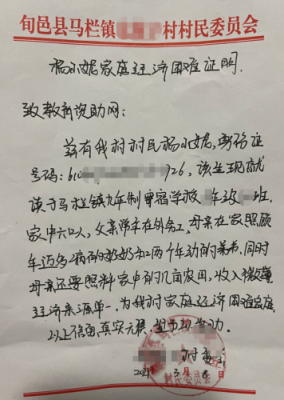 旬邑县马栏镇 村村民委员会
杨 妮家庭经济困难证明
致教新资助网:
兹有我村村民杨 妮,身份证
号码:610 726,该生现就
读于马栏镇九年制寄宿学校 年级 班
家中六口人,父亲常年在外务工,母亲在家照顾
年迈多病的奶奶和两个年幼的弟弟,同时
母亲还要照料家中的几亩农田,收入微薄
经济来源单一,为我村家庭经济困难家庭
以上信息真实无误,望予以帮助。
村委
202 3月 日
村民委员会